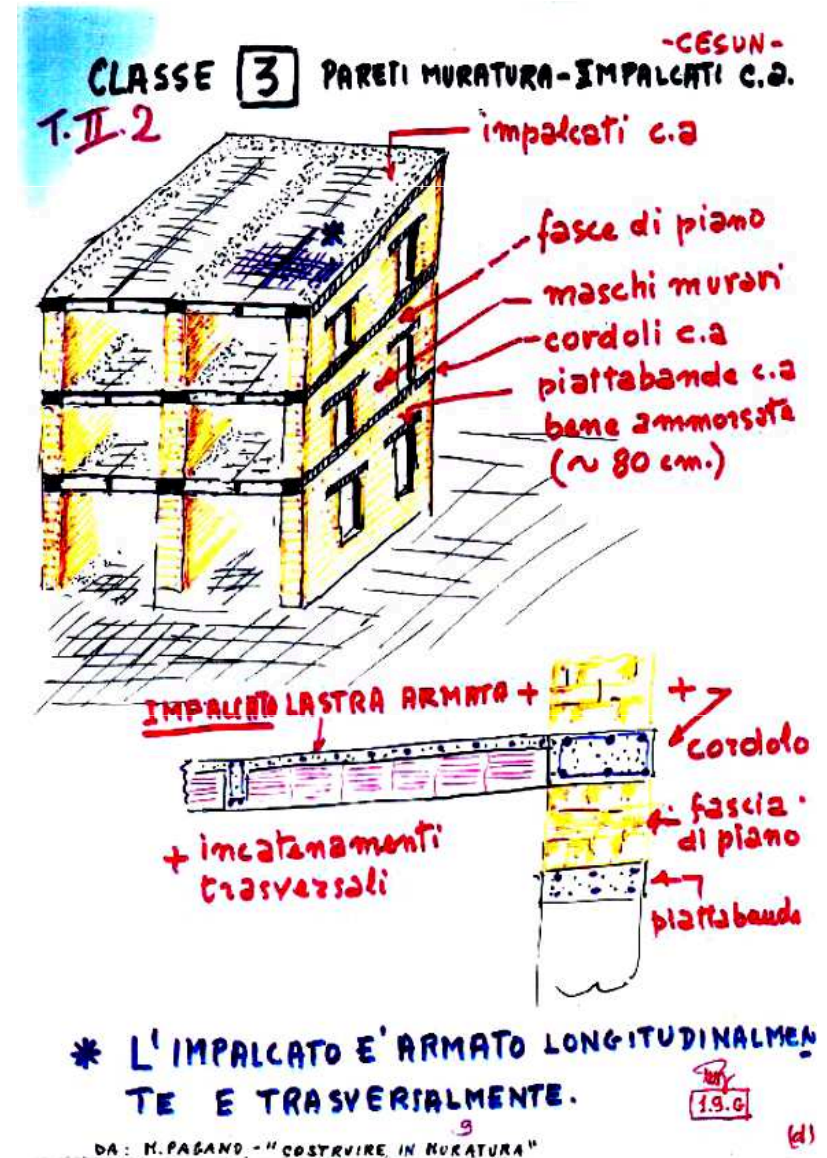 -CESUN-
CLASSE 3 PARETI MURATURA-IMPALCATI C.a.
T.II.2
impalcati c.a
*
fasce di piano
maschi murari
cordoli c.a
piattabande c.a
bene ammorsate
(~ 80 cm.)
IMPALCATO LASTRA ARMATA +
+
cordolo
fascia
di piano
+ incatenamenti
trasversali
piattabanda
* L'IMPALCATO E' ARMATO LONGITUDINALMEN
TE E TRASVERSALMENTE.
1.9.G
9
(d)
DA: M.PAGANO-"COSTRUIRE IN MURATURA"